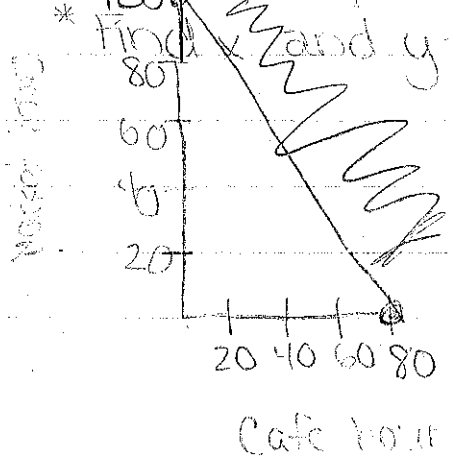 * Find x and y
100
80
60
40
20
20 40 60 80
Cafe hour